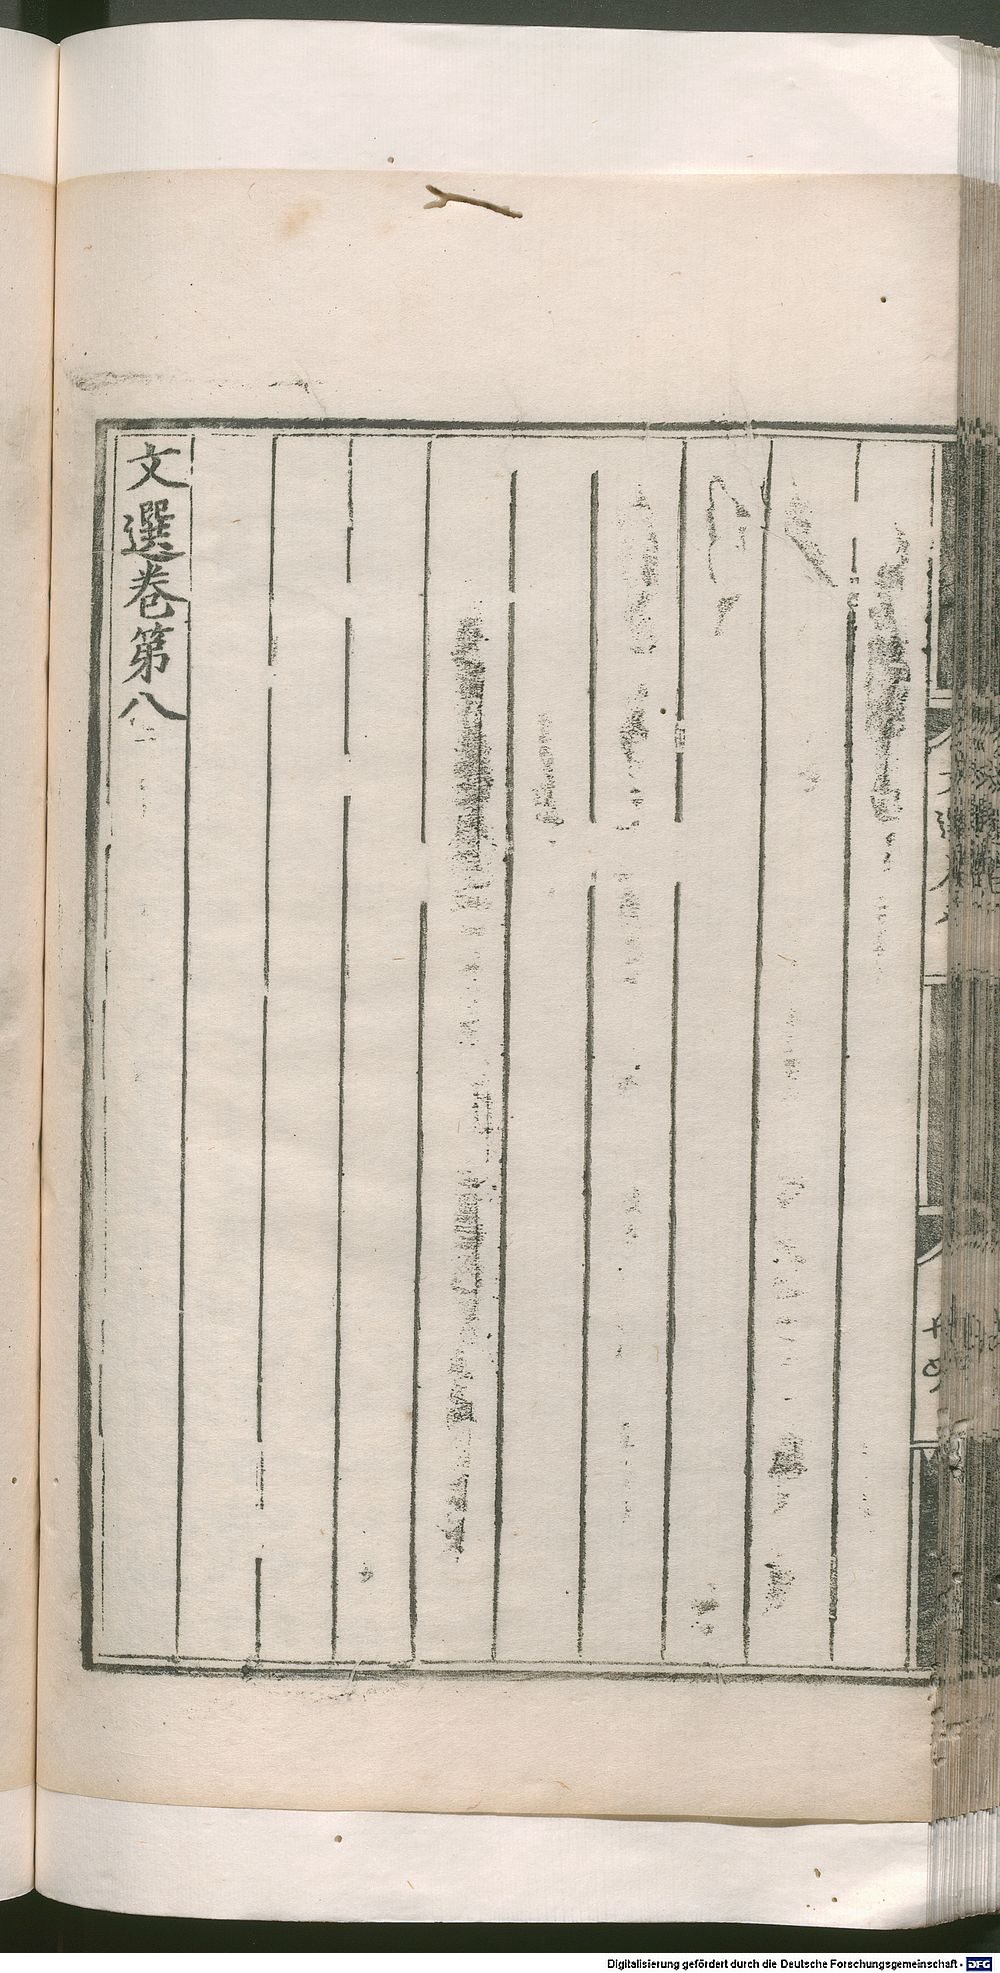 文選卷第八
Digitalisierung gefördert durch die Deutsche Forschungsgemeinschaft - DFG